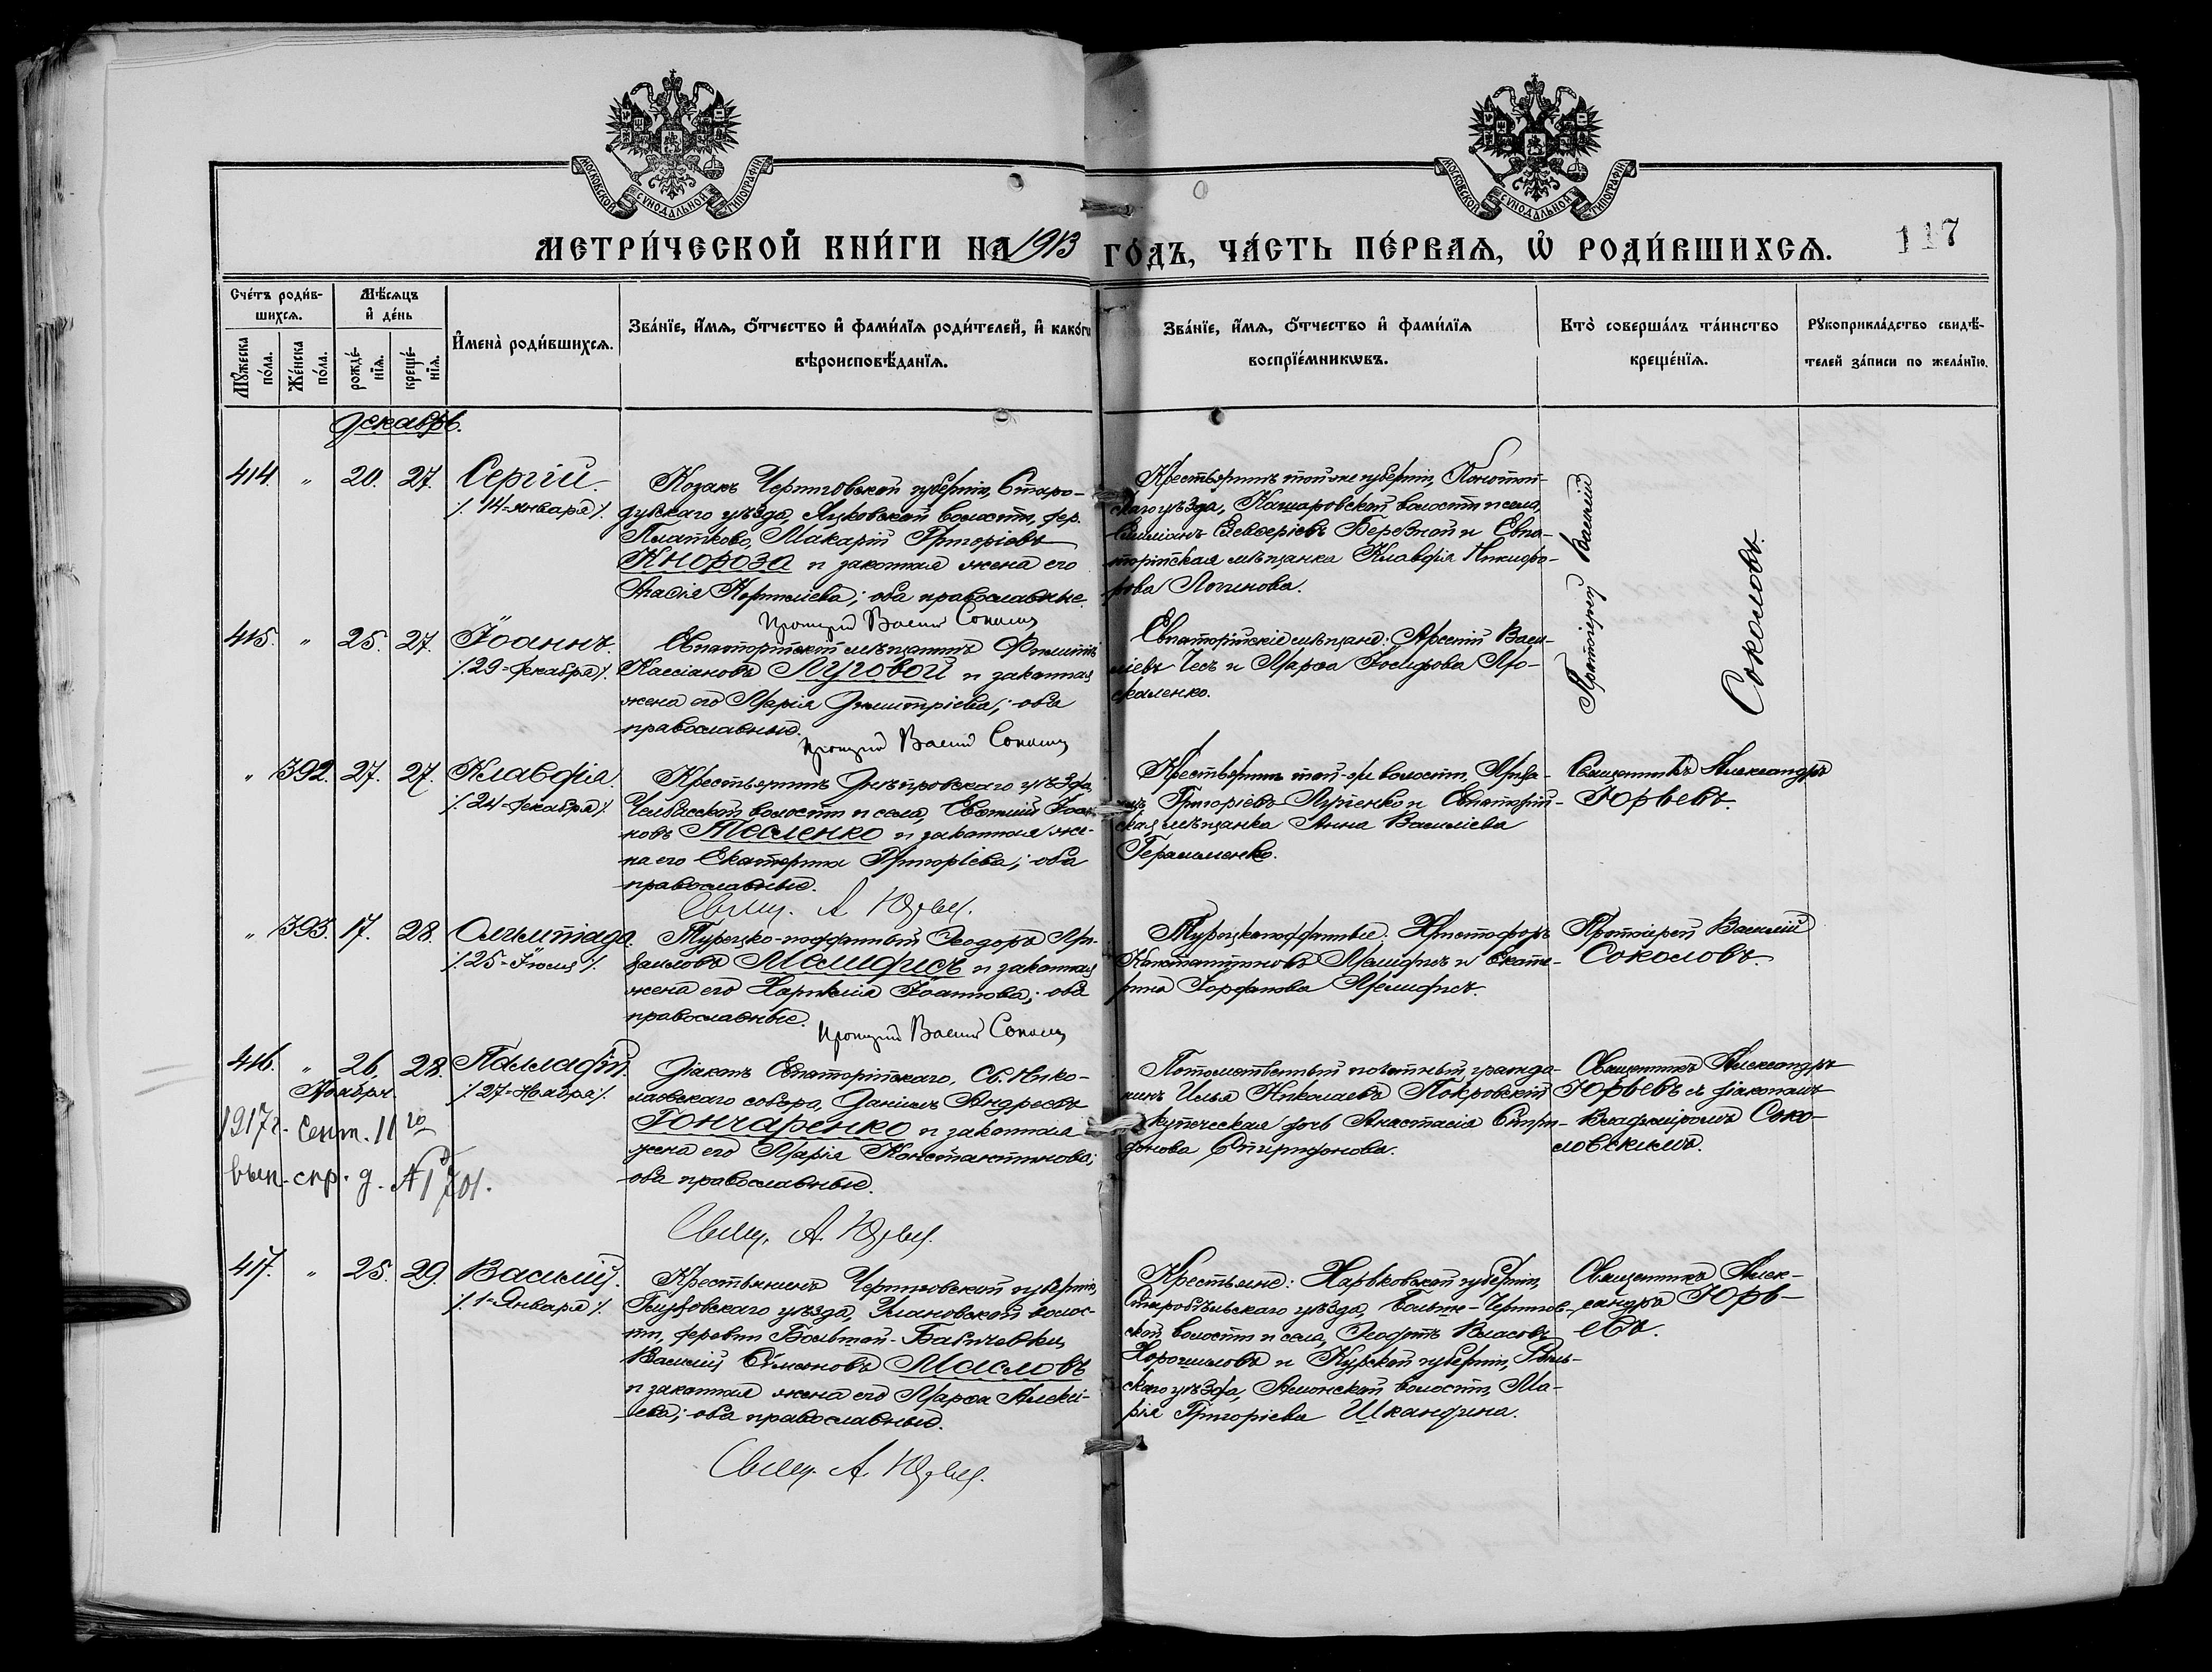 МОСКОВСКОЙ СѴНОДАЛЬНОЙ ТИПОГРАФІИ
МОСКОВСКОЙ СѴНОДАЛЬНОЙ ТИПОГРАФІИ
МЕТРИ́ЧЕСКОЙ КНИ́ГИ НА 1913 ГО́ДЪ, ЧА́СТЬ ПЕ́РВАѦ, Ѡ҆ РОДИ́ВШИХСѦ.
117
Сче́тъ роди́в-
шихсѧ.
Мꙋ́жеска по́ла.
Же́нска по́ла.
Мѣ́сѧцъ
и҆ де́нь
рожде́-
нїѧ.
креще́-
нїѧ.
И҆мена̀ роди́вшихсѧ.
Зва́нїе, и҆́мѧ, ѻ҆́тчество и҆ фами́лїѧ роди́телей, и҆ како́гѡ
вѣроисповѣ́данїѧ.
Зва́нїе, и҆́мѧ, ѻ҆́тчество и҆ фами́лїѧ
воспрїе́мникѡвъ.
Кто̀ соверша́лъ та́инство
креще́нїѧ.
Рꙋкоприкла́дство свидѣ́-
телей за́писи по жела́нїю.
Декабрь.
414. " 20. 27. Сергій.
/. 14=января ./
Козакъ Черниговской губерніи, Старо-
дубскаго уѣзда, Лужковской волости, дер.
Платково, Макарій Григоріевъ
Кнороза и законная жена его
Корнилiева; оба православные.
Протоіерей Василій Соколовъ
Крестьянинъ той же губерніи, Конотоп-
скаго уѣзда, Кошаровской волости и села,
Березной и Евпа-
торійская мѣщанка Клавдія Никифо-
рова Логинова.
Протоіерей Василій
Соколовъ.
415. " 25. 27. Іоаннъ.
/. 29=декабря ./
Евпаторійскій мѣщанинъ Филиппъ
Кассіановъ Луговой и законная
жена его Марія Димитріева; оба
православные.
Протоіерей Василій Соколовъ
Евпаторійскіе мѣщане: Арсеній Васи-
ліевъ Чесъ и Марѳа Іосифова Мо-
скаленко.
" 392. 27. 27. Клавдія.
/. 24=декабря ./
Крестьянинъ Днѣпровскаго уѣзда,
Чалбасской волости и села, Евѳимій Іоан-
новъ Тесленко и законная же-
на его Екатерина Григоріева; оба
православные.
Свящ. А. Юрьевъ.
Крестьянинъ той-же волости,
Григоріевъ и Евпаторій-
ская мѣщанка Анна Василіева
Герасименко.
Священникъ Александръ
Юрьевъ.
" 393. 17. 28. Олимпіада.
/. 25=Іюля ./
Турецко-подданный Ѳеодоръ Ми-
хаиловъ Мелифисъ и законная
жена его Хариклія Іоаннова; оба
православные.
Протоіерей Василій Соколовъ
Турецкоподданные: Христофоръ
Константиновъ Мелифисъ и Екате-
рина Іорданова Мелифисъ.
Протоіерей Василій
Соколовъ.
416. " 26. 28. Палладій.
Ноября /. 27=Ноября ./
1917г. Сент. 11го
вып. спр. д. № 701.
Діаконъ Евпаторійскаго, Св. Нико-
лаевскаго собора, Даніилъ Андреевъ
Гончаренко и законная
жена его Марія Константинова;
оба православные.
Свящ. А. Юрьевъ.
Потомственный почетный гражда-
нинъ Илья Николаевъ Покровскій
и купеческая дочь Анастасія Спири-
донова Спиридонова.
Священникъ Александръ
Юрьевъ съ діакономъ
Владиміромъ Соко-
ловскимъ.
417. " 25. 29. Василій.
/. 1=Января ./
Крестьянинъ Черниговской губерніи,
Глуховскаго уѣзда, Улановской волос-
ти, деревни Большой-Бабичевки,
Василій Симеоновъ Масловъ
и законная жена его Марѳа Алексі-
ева; оба православные.
Свящ. А. Юрьевъ.
Крестьяне: Харьковской губерніи,
Старобѣльскаго уѣзда, Бѣло-
ской волости и села, Ѳеодотъ Власовъ
Хорошиловъ и Курской губерніи, Рыль-
скаго уѣзда, Амонской волости, Ма-
рія Григоріева Шкандина.
Священникъ Алек-
сандръ Юрь-
евъ.